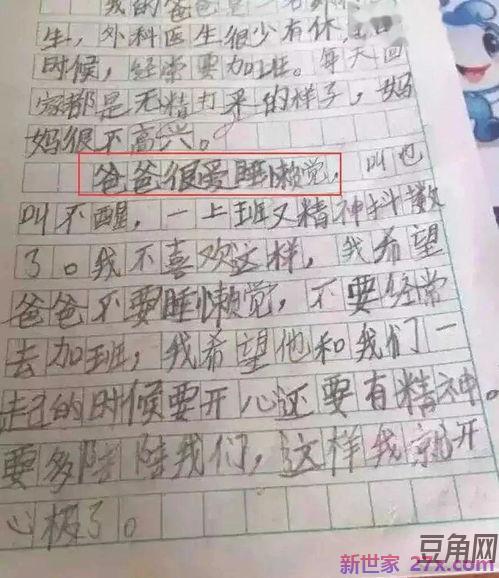 我的爸爸是一名外科
生，外科医生很少有休
时候，经常要加班。每天回
家都是无精打采的样子，妈
妈很不高兴。
爸爸很爱睡懒觉，叫也
叫不醒，一上班又精神抖擞
了。我不喜欢这样，我希望
爸爸不要睡懒觉，不要经常
去加班，我希望他和我们一
起的时候要开心还要有精神。
要多陪陪我们，这样我就开
心极了。
豆角网
新世家 27x.com